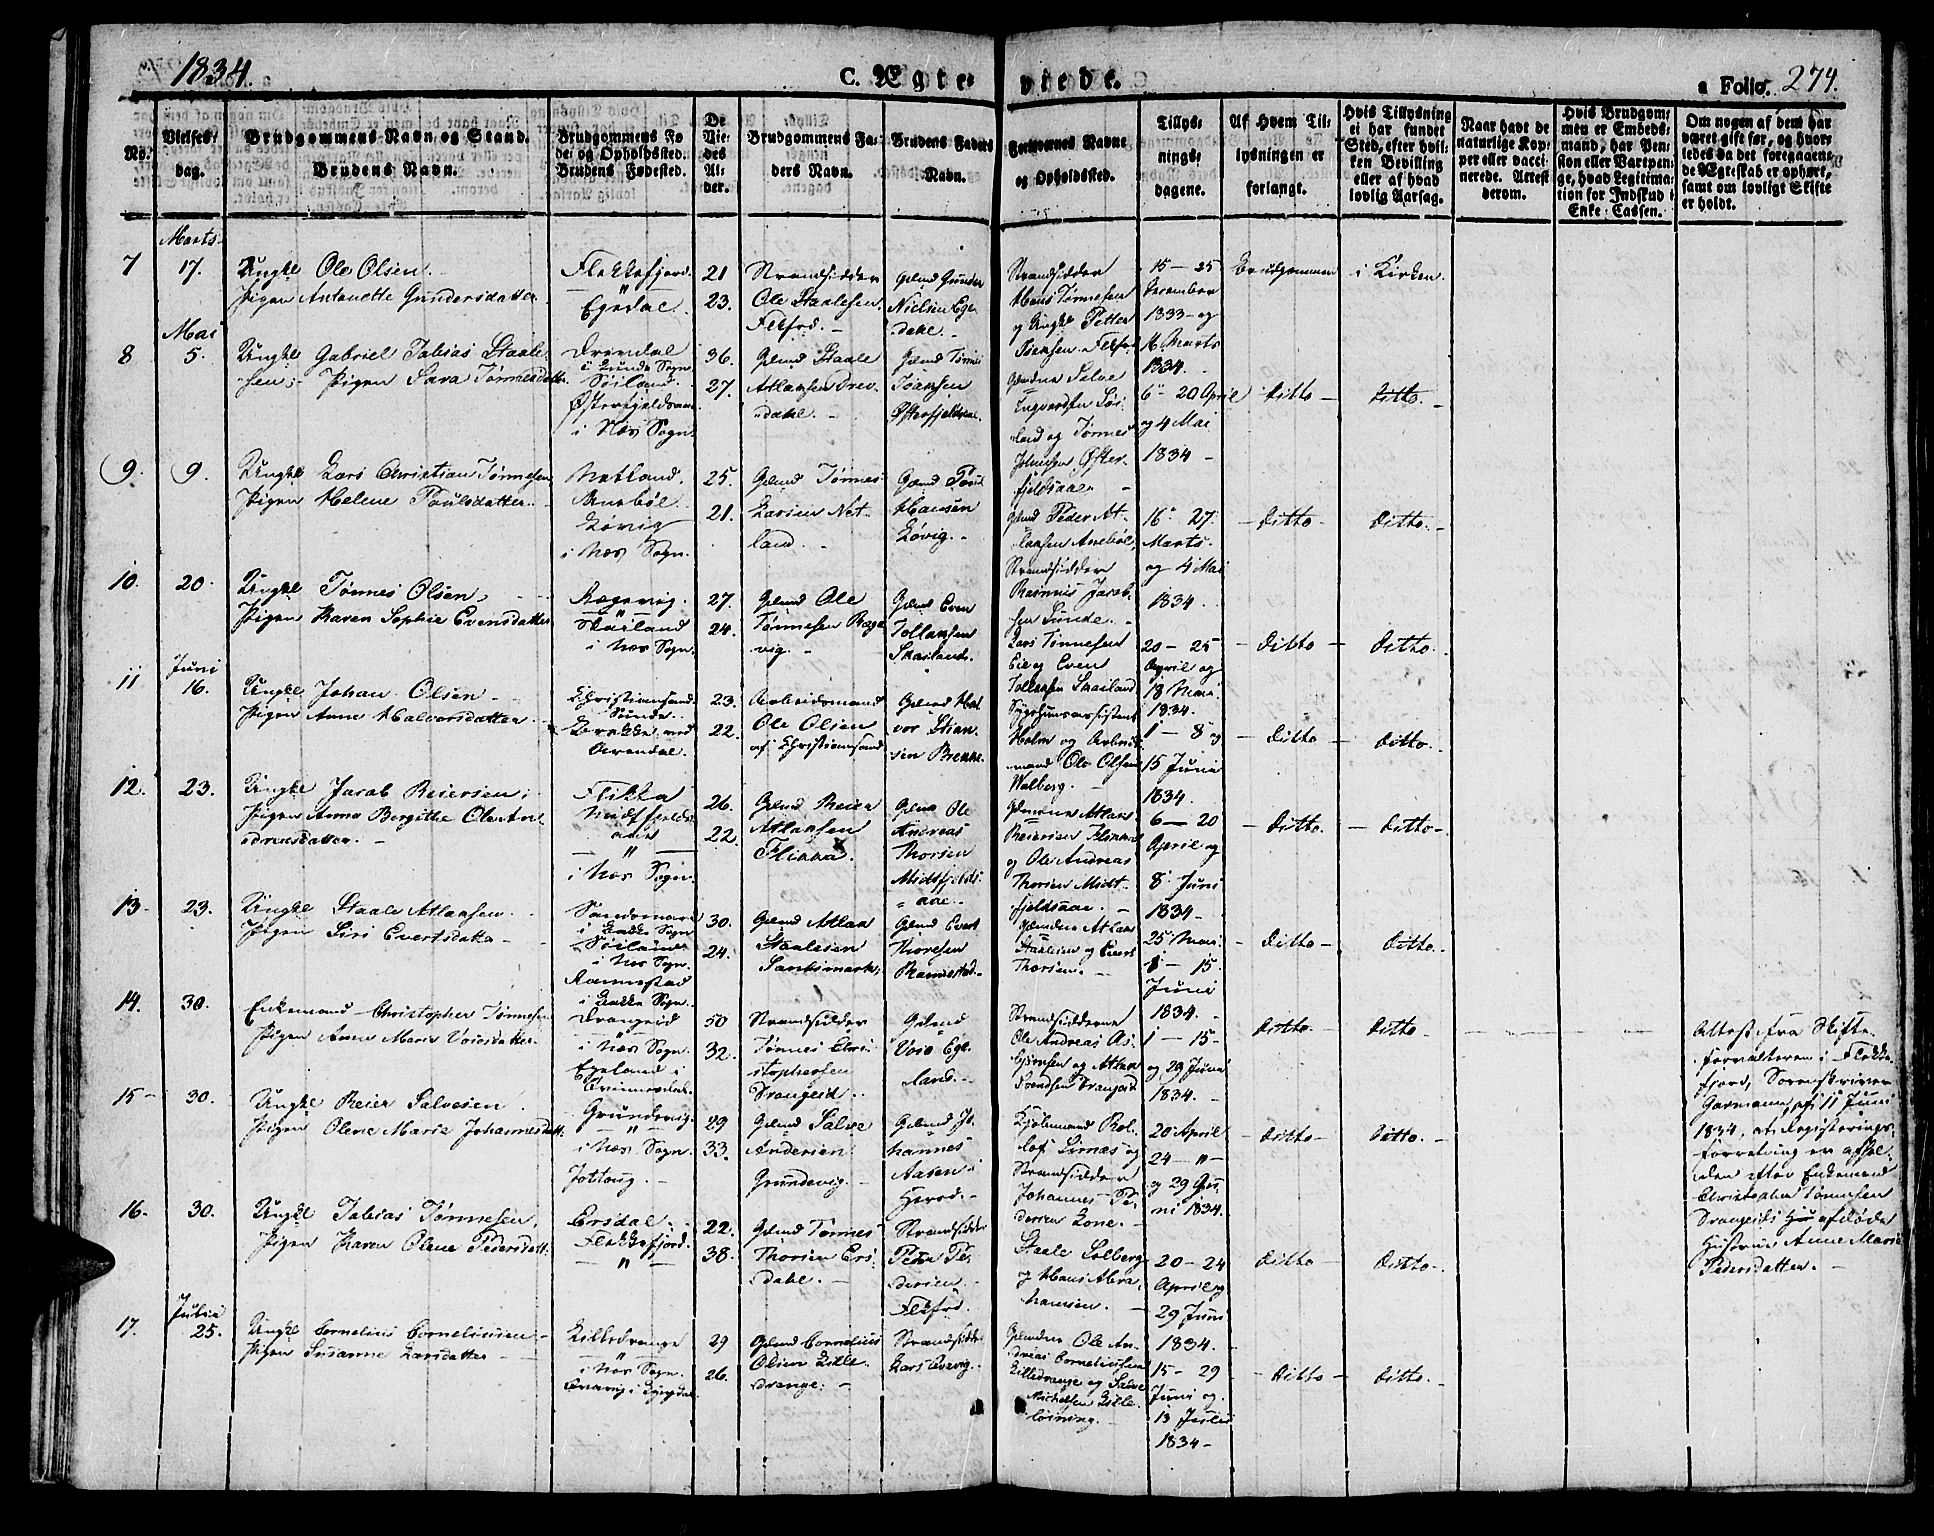 1834.
C. Ægte-
viede.
a Folio. 274.
No.
Vielses-
dag.
Brudgommens Navn og Stand.
Brudens Navn.
Brudgommens Fø-
de- og Opholdssted.
Brudens Fødested.
De
Vie-
des
Al-
der.
Brudgommens Fa-
ders Navn.
Brudens Faders
Navn.
Forlovernes Navne
og Opholdssted.
Tillys-
nings-
dagene.
Af Hvem Til-
lysningen er
forlangt.
Hvis Tillysning
ei har fundet
Sted, efter hvil-
ken Bevilling
eller af hvad
lovlig Aarsag.
Naar havt de
naturlige Kop-
per eller vacci-
nerede. Attest
derom.
Hvis Brudgom-
men er Embeds-
mand, har Pen-
sion eller Vartpen-
ge, hvad Legitima-
tion for Indskud i
Enke-Cassen.
Om nogen af dem har
været gift før, og hvor-
ledes da det foregaaen-
de Ægteskab er ophørt,
samt om lovligt Skifte
er holdt.
Marts
7
17.
Ungkl Ole Olsen.
Pigen Antonette Gundersdatter
Flekkefjord.
"
Egedal.
21
23.
Strandsidder
Ole Staalesen
Flkfrd.
Gdmd Gunder
Nielsen Ege-
dahl.
Strandsidder
Hans Tønnesen
og Ungkl Petter
15 - 25
December
1833 - og
16 Marts
1834.
Brudgommen
i Kirken.
Mai
8
5.
Ungkl Gabriel Tobias Staale-
sen; Pigen Sara Tønnesdatter
Drivdal
i Lunde Sogn
Søiland.
Østerfjeldsaae
i Næs Sogn.
36.
27.
Gdmd Staale
Atlaksen Drev-
dahl.
Gdmd Tønnes
Østerfjeldsaae.
Gdmdne Salve
Ingvardsen Søi-
land og Tønnes
Øster-
fjeldsaae
6 - 20 April
og 4 Mai
1834 -
ditto -
ditto.
9.
9.
Ungkl Lars Christian Tønnesen
Pigen Helene Poulsdatter
Netland.
Anebøl.
Løvig
i Næs Sogn.
25.
21.
Gdmd Tønnes
Larsen Net-
land.
Gdmd Poul
Hansen
Løvig.
Gdmd Peder At-
laksen Anebøl,
Strandsidder
Rasmus Jacob-
sen Sunde.
16 - 27
Marts
og 4 Mai
1834
- ditto -
ditto.
10.
20.
Ungkl Tønnes Olsen,
Pigen Karen Sophie Evensdatter
Rægevig.
"
Skailand
i Næs Sogn.
27.
24.
Gdmd Ole
Tønnesen Ræge-
vig.
Gdmd Even
Tollaksen
Skailand.
Lars Tønnesen
Eie og Even
Tollaksen Skailand
20 - 25
April og
18 Mai
1834.
- ditto -
ditto.
Juni
11
16.
Ungkl Johan Olsen
Pigen Anne Halvorsdatter
Christiansand
Sunde.
Brekke ved
Arendal.
23.
22.
Arbeidsmand
Ole Olsen
af Christiansand
Gdmd Hal-
vor Stian-
sen Brekke.
Holm og Arbeids-
mand Ole Olsen
Walberg.
1 - 8 og
15 Juni
1834.
- ditto -
ditto.
12.
23.
Ungkl Jacob Reiersen;
Pigen Anna Bergithe Ole An-
dreasdatter.
Flikka
Midtfjelds-
aae
"
i Næs Sogn.
26.
22.
Gdmd Reier
Atlaksen
Flikka.
Gdmd Ole
Andreas
Thorsen
Midtfjelds-
aae.
Gdmdne Atlak
Reiersen Flikka
og Ole Andreas
Thorsen Midt-
fjeldsaae.
6 - 20
April og
8 Juni
1834
- ditto.
- ditto -
13.
23.
Ungkl Staale Atlaksen
Pigen Siri Evertsdatter
Sandsmark
i Bakke Sogn
Søiland
i Næs Sogn.
Rannestad
i Bakke Sogn.
30.
24.
Gdmd Atlak
Staalesen
Sandsmark.
Gdmd Evert
Thorsen
Rannestad.
Gdmdne Atlak
Staalesen og Evert
Thorsen.
25 Mai
1 - 15
Juni
1834.
- ditto -
ditto.
14.
30.
Enkemand Christopher Tønnesen
Pigen Anne Marie Voiesdatter.
Drangeid
i Næs Sogn.
Egeland i
50
32.
Strandsidder
Tønnes Chri-
stophersen
Drangeid
Gdmd
Voie Ege-
land.
Strandsidderne
Ole Andreas As-
bjørnsen og Atlak
Svendsen Drangeid
1 - 15 -
og 29 Juni
1834.
ditto -
ditto
Attest fra Skifte-
forvalteren i Flekke-
fjord, Sorenskriver
Garmann, af 11 Juni
1834, at Registerings-
forretning er afhol-
den efter Enkemand
Christopher Tønnesen
Drangeids afdøde
Hustrue Anne Marie
Pedersdatter.
15 -
30.
Ungkl Reier Salvesen.
Pigen Olene Marie Johannesdatt.
Grundevig.
"
i Næs Sogn.
29
33.
Gdmd Salve
Andersen
Grundevig.
Gdmd Jo-
hannes
Aasen i
Kjøbmand Rol-
lof Sirnæs og
Strandsidder
Johannes Pe-
dersen Lone.
20 April
24 - " -
og 29 Ju-
ni 1834.
- ditto -
ditto.
16.
30.
Ungkl Tobias Tønnesen,
Pigen Karen Olene Pedersdatt.
Ersdal.
Flekkefjord.
"
22.
38.
Gdmd Tønnes
Thorsen Ers-
dahl.
Strandsidder
Peder Pe-
dersen
Flkfrd.
Staale Solberg
og Hans Abra-
hamsen.
20 - 24
April og
29 Juni
1834.
ditto
ditto.
Julii
17.
25.
Ungkl Cornelius Corneliussen
Pigen Susanne Larsdatter
Lilledrange
"
i Næs Sogn.
Qvavig i Lyngdal
29
26.
Gdmd Cornelius
Olsen Lille-
drange.
Strandsidder
Lars Qvavig.
Gdmdne Ole An-
dreas Corneliussen
Lilledrange og Salve
Michelsen Lille-
løining.
15 - 29
Juni og
13 Julii
1834 -
- ditto -
ditto.